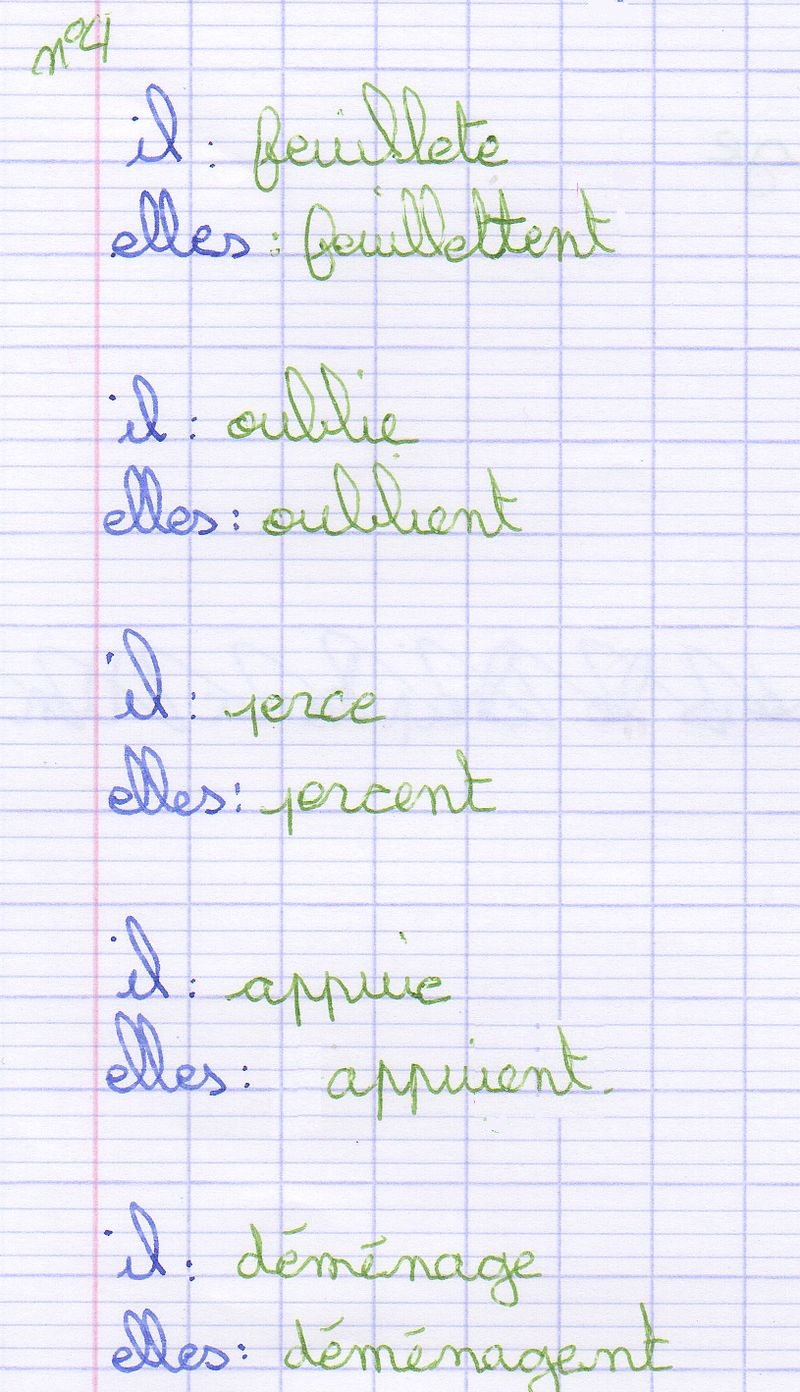 n°4
il : feuillete
elles : feuillettent
il : oublie
elles : oublient
il : perce
elles : percent
il : appuie
elles : appuient.
il : déménage
elles : déménagent